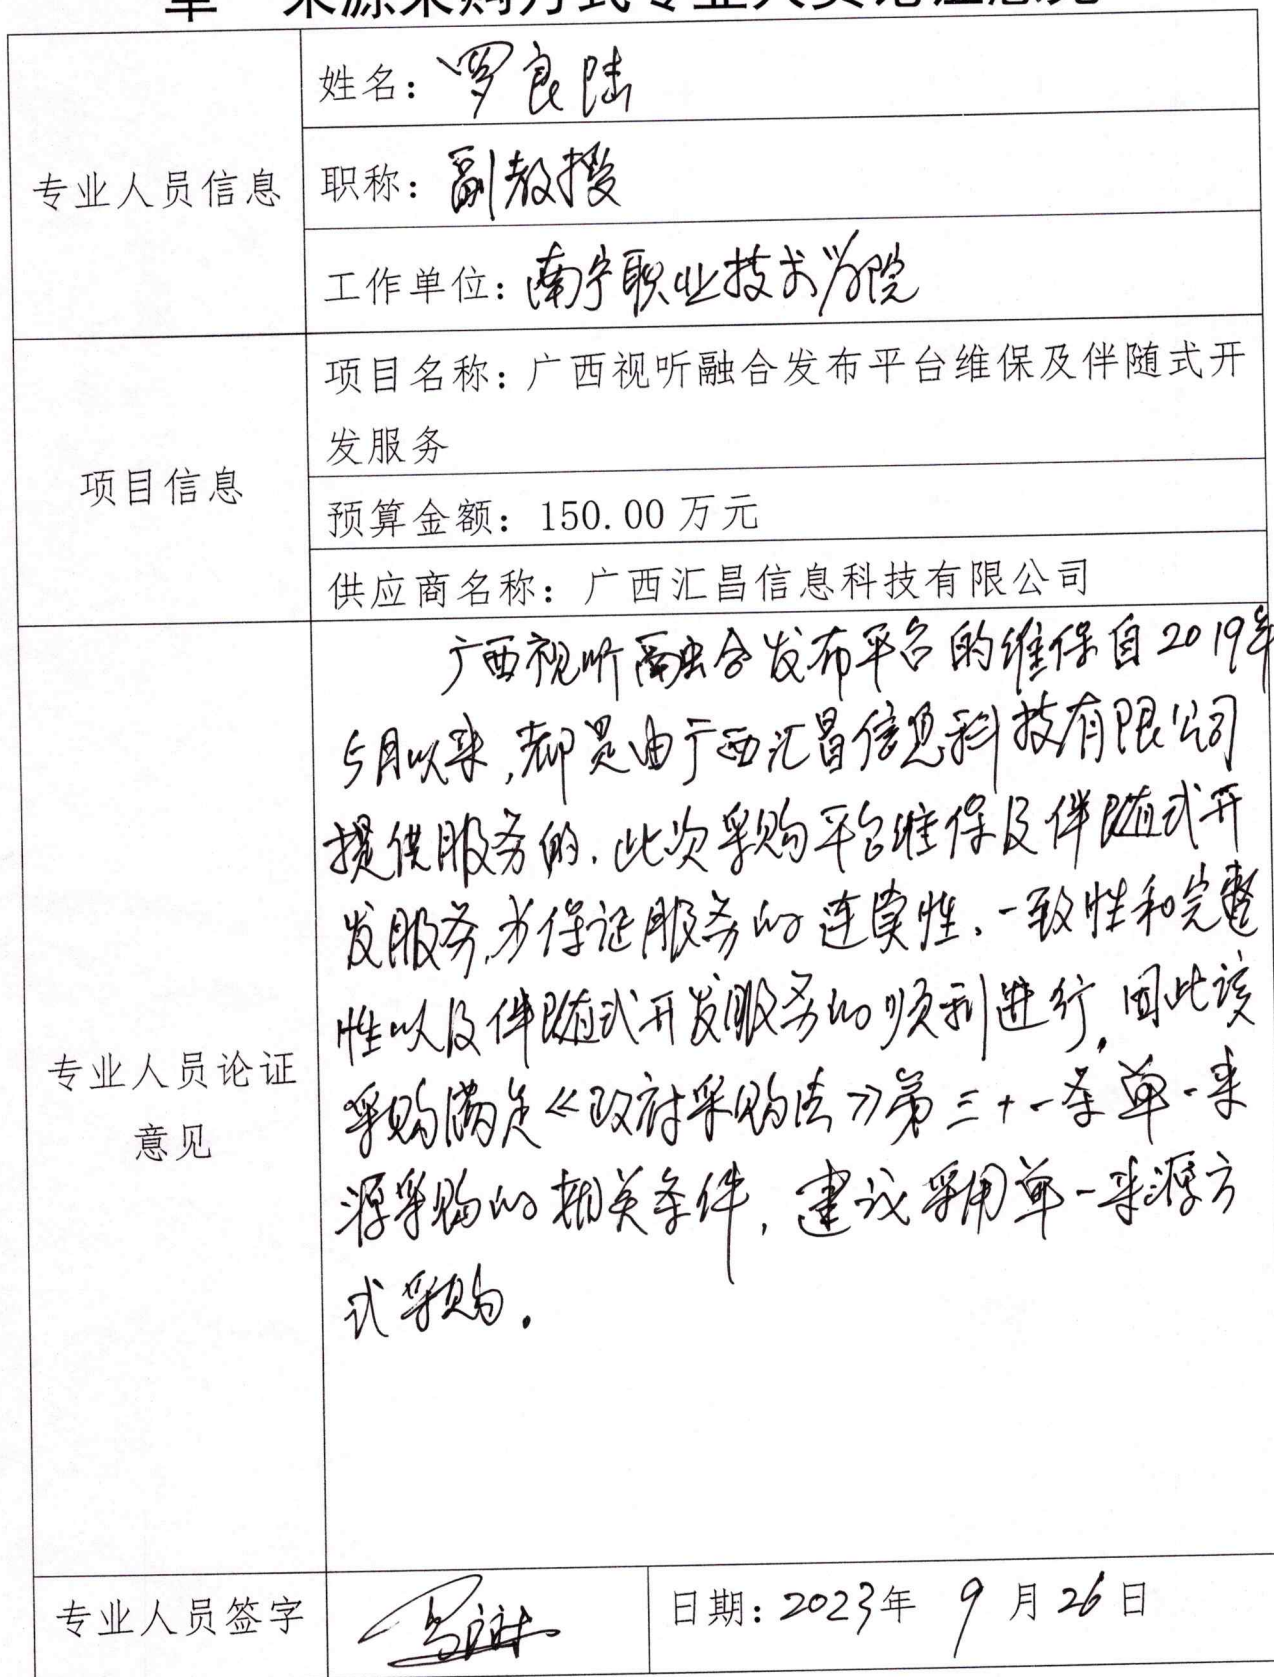 单一来源采购方式专业人员论证意见
专业人员信息
姓名：罗良陆
职称：副教授
工作单位：南宁职业技术学院
项目信息
项目名称：广西视听融合发布平台维保及伴随式开
发服务
预算金额：150.00 万元
供应商名称：广西汇昌信息科技有限公司
专业人员论证
意见
广西视听融合发布平台的维保自2019年
5月以来，都是由广西汇昌信息科技有限公司
提供服务的，此次采购平台维保及伴随式开
发服务，为保证服务的连贯性、一致性和完整
性以及伴随式开发服务的顺利进行，因此该
采购满足《政府采购法》第三十一条单一来
源采购的相关条件，建议采用单一来源方
式采购。
专业人员签字
日期：2023年 9 月 26 日